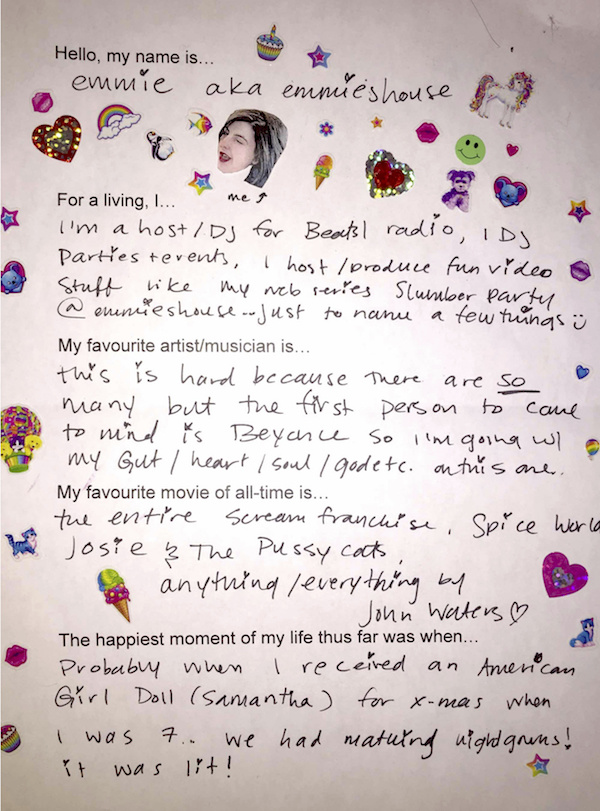 Hello, my name is...
emmie aka emmieshouse
me
For a living, I...
I'm a host/DJ for Beats1 radio, I DJ
Parties + events, I host/produce fun video
Stuff like my web series Slumber Party
@emmieshouse... just to name a few things
My favourite artist/musician is...
this is hard because there are so
many but the first person to come
to mind is Beyonce so I'm going w/
my Gut/heart/soul/god etc. on this one.
My favourite movie of all-time is...
the entire Scream franchise, Spice World
Josie & The Pussy cats,
anything/everything by
John Waters ♡
The happiest moment of my life thus far was when...
Probably when I received an American
Girl Doll (Samantha) for x-mas when
I was 7.. we had matching nightgowns!
it was lit!